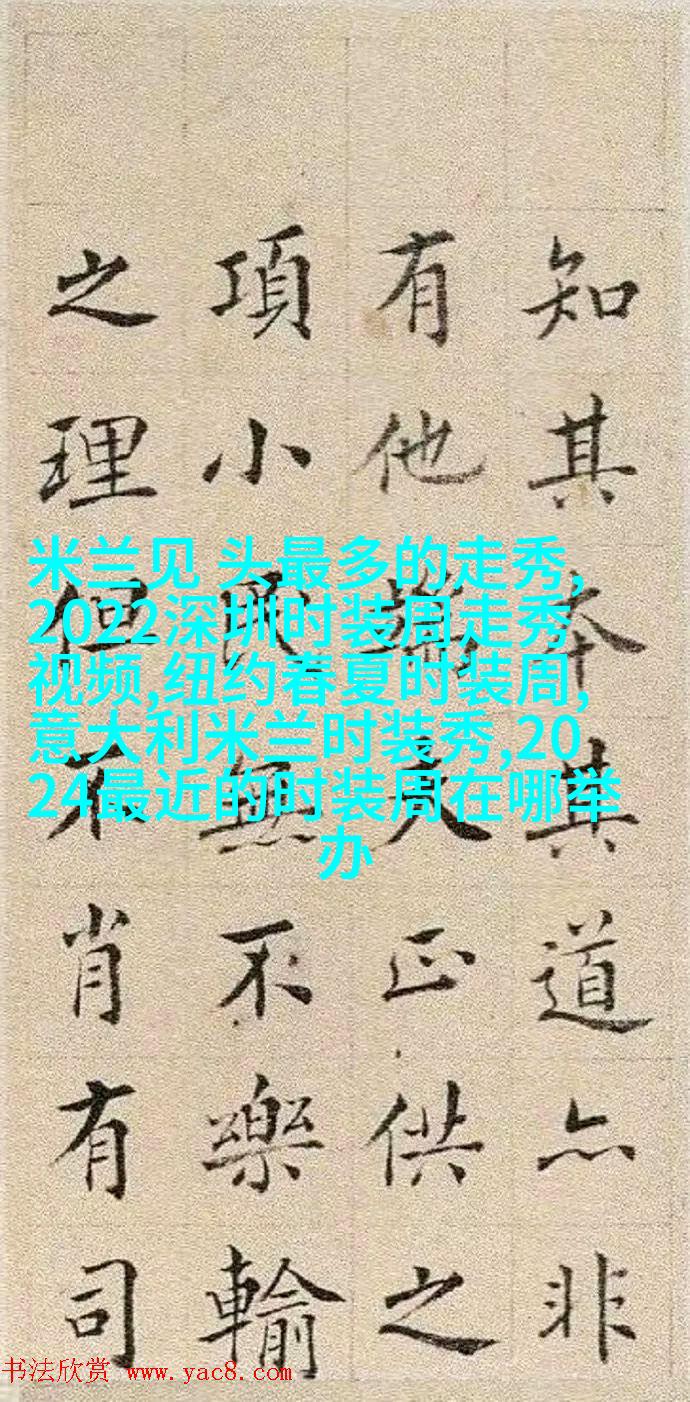 知其本其道亦非
有他夫正供之
項小民無不樂輸
之理但不肖有司
米兰见 头最多的走秀,
2022深圳时装周走秀
视频,纽约春夏时装周,
意大利米兰时装秀,20
24最近的时装周在哪举
办
书法欣赏 www.yac8.com